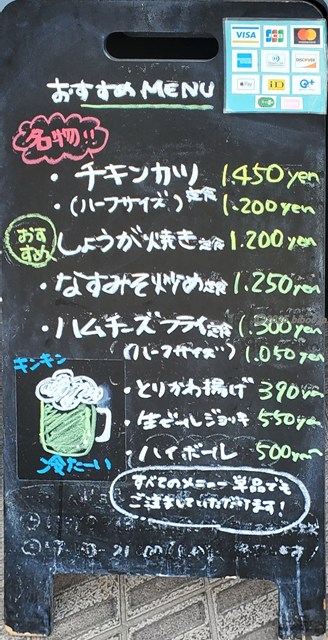 VISA JCB MasterCard
DISCOVER
Pay iD
おすすめMENU
名物!!
・チキンカツ定食 1.450yen
・(ハーフサイズ) 1.200yen
おすすめ しょうが焼き定食 1.200yen
・なすみそ炒め定食 1.250yen
・ハムチーズフライ定食 1.300yen
(ハーフサイズ) 1.050yen
キンキン
冷たーい
・とりかわ揚げ 390yen
・生ビールジョッキ 550yen
・ハイボール 500yen
すべてのメニュー単品でも
ご注文していただけます!